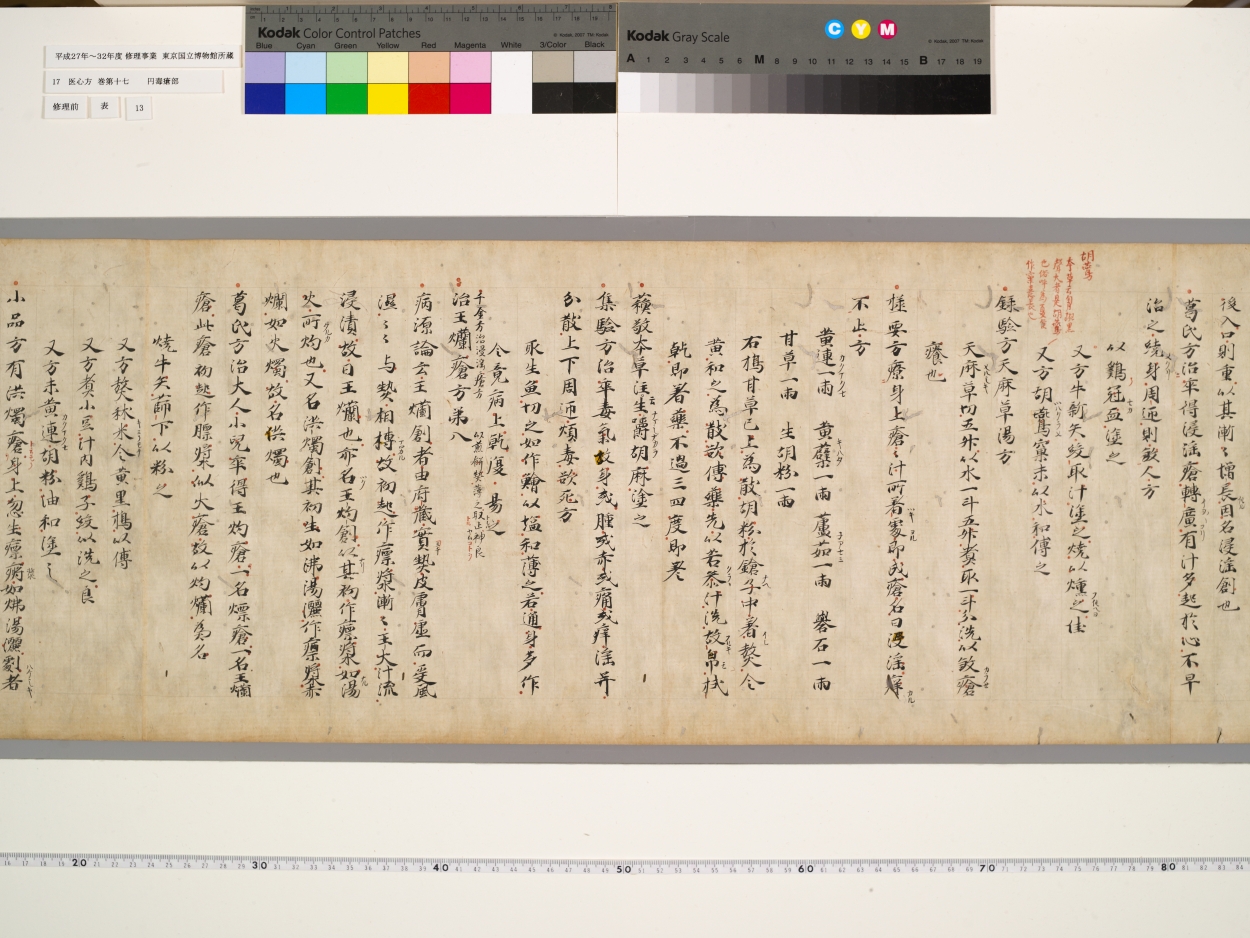 平成27年～32年度 修理事業 東京国立博物館所蔵
17 医心方 巻第十七 円毒瘡部
修理前 表 13
Kodak Color Control Patches
Blue Cyan Green Yellow Red Magenta White 3/Color Black
Kodak Gray Scale
C Y M
A 1 2 3 4 5 6 M 8 9 10 11 12 13 14 15 B 17 18 19
後入口則重以其漸々增長因名浸淫創也
葛氏方治卒得浸淫瘡轉廣有汁多起於心不早
治之繞身周迊則敎人方
以鷄冠血塗之
又方牛新矢絞取汁塗之燒以燻之佳
又方胡鷰窠末以水和傅之
胡鷰
錄驗方天麻草湯方
天麻草切五升以水一斗五升煮取一斗分洗以敎瘡
癢也
極要方療身上瘡々汁所着處即成瘡名曰浸淫
不止方
黄連一兩 黄蘗一兩 蘆茹一兩 礬石一兩
甘草一兩 生胡粉一兩
石鵝甘草已上爲散胡粉於鎗子中着熬令
黄和之爲散欲傅藥先以若茶汁洗故帛拭
乾即着藥不過三四度即差
蘇敬本草注云生嚼胡麻塗之
集驗方治卒毒氣攻身或腫或赤或痛或痒淫并
分散上下周迊煩毒欲死方
取生魚切之如作鱠以塩和薄之若通身多作
令竟病上乾復易之
治王爛瘡方第八
千金方治浸淫瘡方
病源論云王爛創者由府藏實熱皮膚虛而受風
濕々与熱相搏故初起作瘭漿漸々王大汁流
浸漬故曰王爛也亦名王灼創以其初作瘭漿如湯
火所灼也又名洪燭創其初生如沸湯灑作瘭漿
爛如火燭故名洪燭也
葛氏方治大人小兒卒得王灼瘡一名熛瘡一名王爛
瘡此瘡初起作膘漿似火瘡故以灼爛爲名
燒牛矢篩下以粉之
又方熬秫米令黄黑搗以傅
又方煮小豆汁內鷄子絞以洗之良
又方末黄連胡粉油和塗之
小品方有洪燭瘡身上忽生瘭瘡如沸湯灑劇者
20 30 40 50 60 70 80